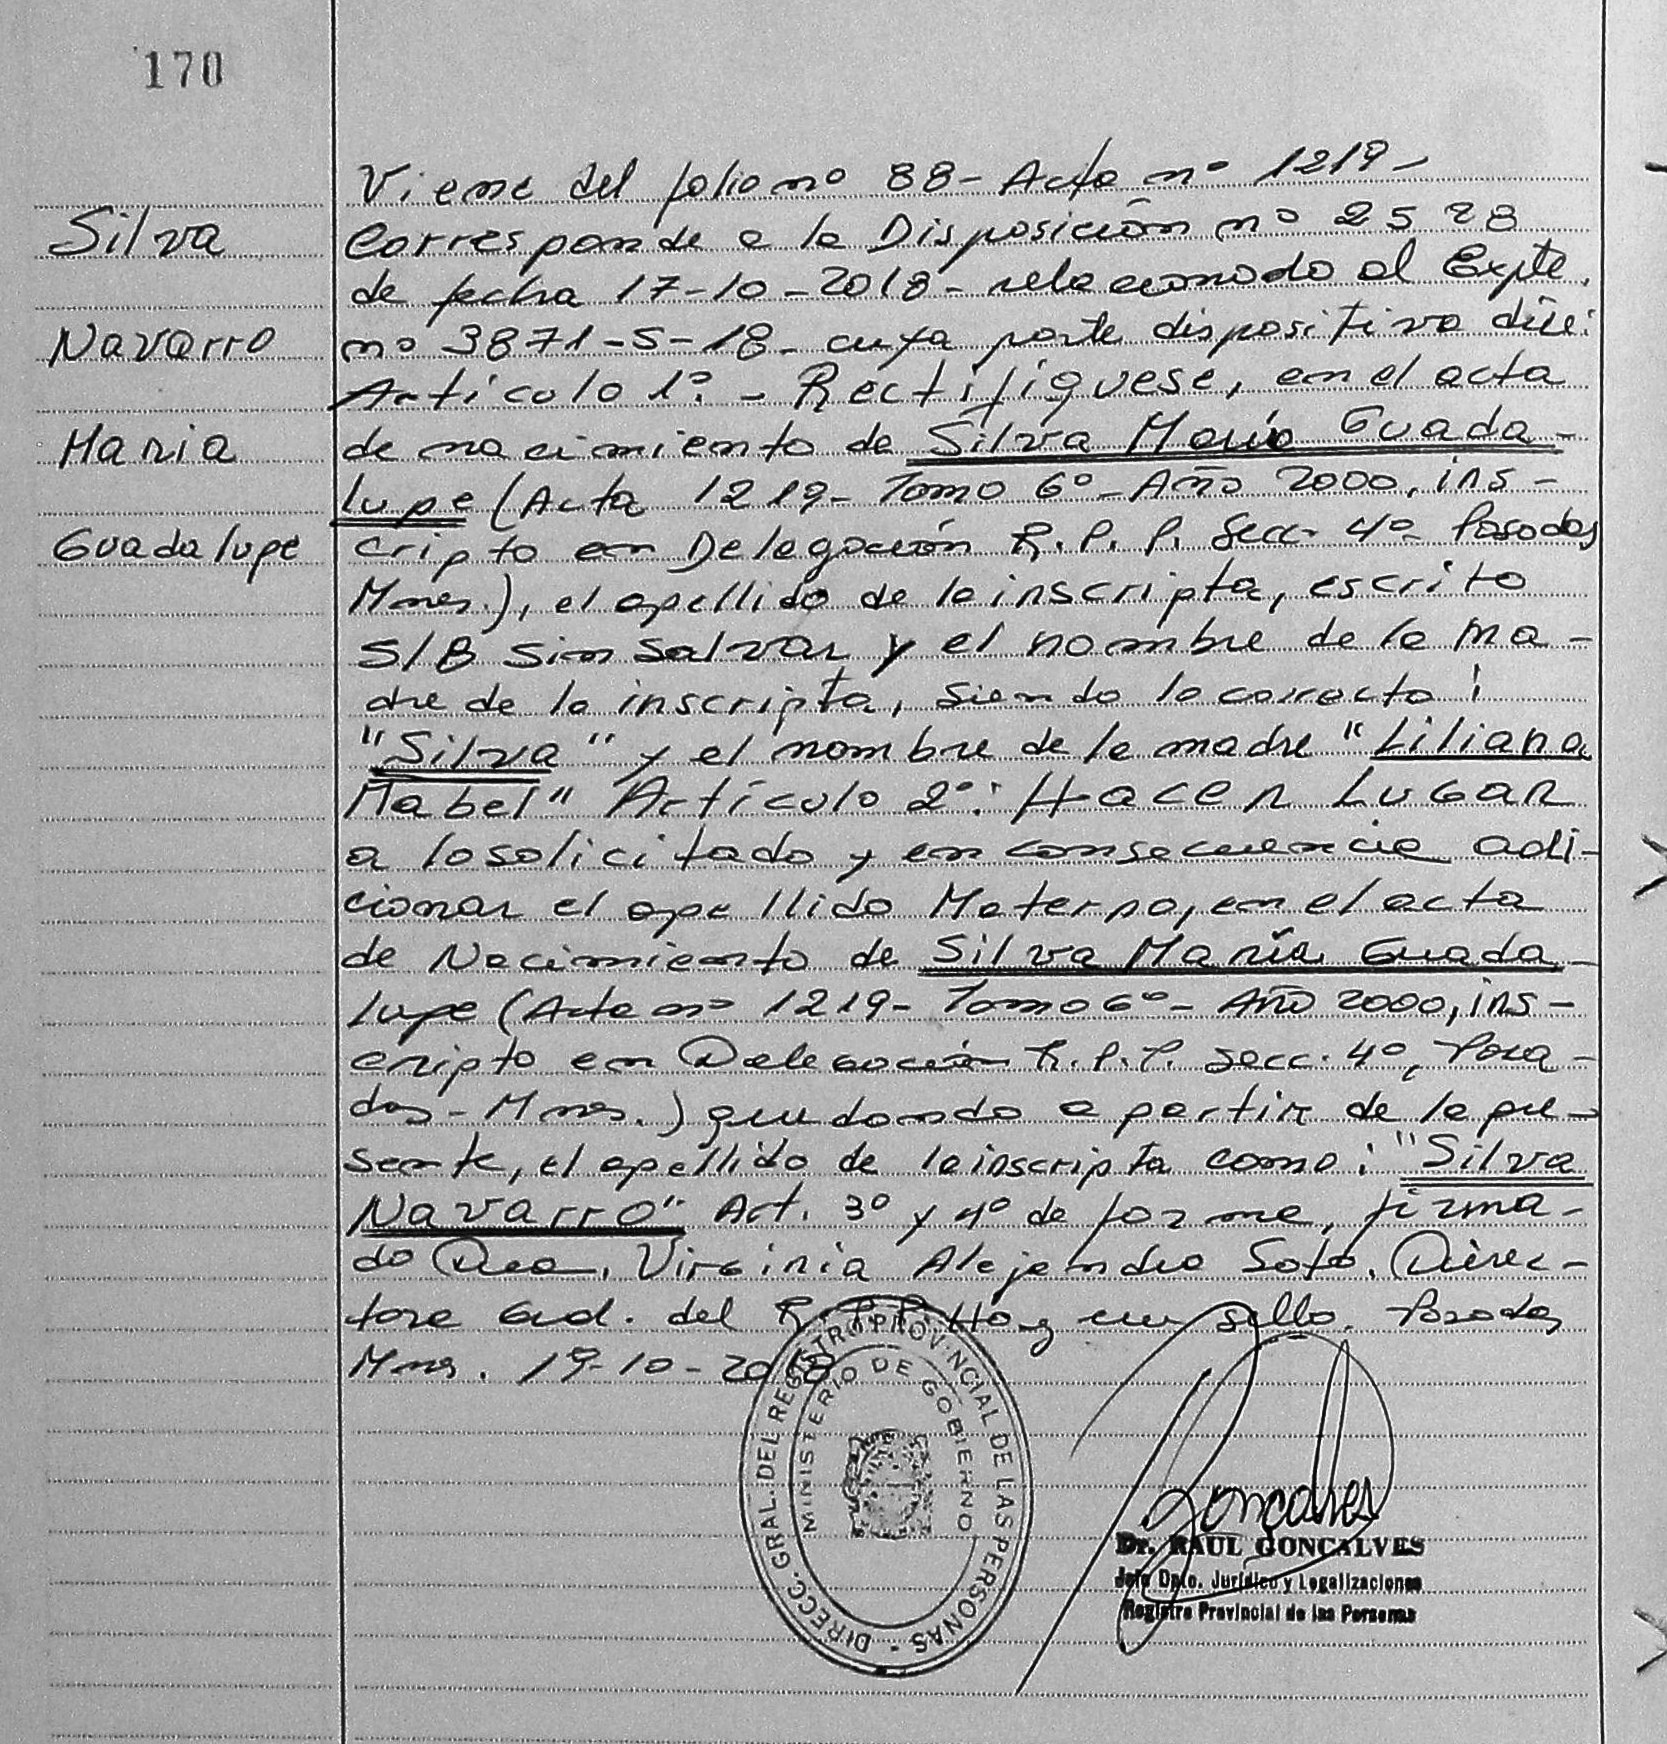 170
Silva
Navarro
Maria
Guadalupe
Viene del folio nº 88- Acta nº 1219-
Corresponde a la Disposición nº 2528
de fecha 17-10-2018- relacionado al Expte.
nº 3871-S-18- cuya parte dispositiva dice:
Artículo 1º.- Rectifíquese, en el acta
de nacimiento de Silva María Guada-
lupe (Acta 1219- Tomo 6º- Año 2000, ins-
cripto en Delegación R.P.P. Secc. 4º Posadas
Mnes.), el apellido de la inscripta, escrito
S/B sin salvar y el nombre de la ma-
dre de la inscripta, siendo lo correcto:
"Silva" y el nombre de la madre "Liliana
Mabel" Artículo 2º: Hacer Lugar
a lo solicitado y en consecuencia adi-
cionar el apellido Materno, en el acta
de Nacimiento de Silva María Guada-
lupe (Acta nº 1219- Tomo 6º- Año 2000, ins-
cripto en Delegación R.P.P. secc. 4º, Posa-
das- Mnes.) quedando a partir de la pre-
sente, el apellido de la inscripta como: "Silva
Navarro" Art. 3º y 4º de forma, firma-
do Dra. Virginia Alejandra Soto. Direc-
tora Gral. del R.P.P. Hay un sello. Posadas
Mnes. 19-10-2018
DIRECC. GRAL. DEL REGISTRO PROVINCIAL DE LAS PERSONAS -
MINISTERIO DE GOBIERNO
Goncalves
Dr. RAUL GONCALVES
Jefe Dpto. Jurídico y Legalizaciones
Registro Provincial de las Personas